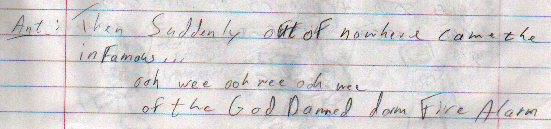 Ant: Then Suddenly out of nowhere came the
infamous...
ooh wee ooh wee ooh wee
of the God Damned dorm Fire Alarm